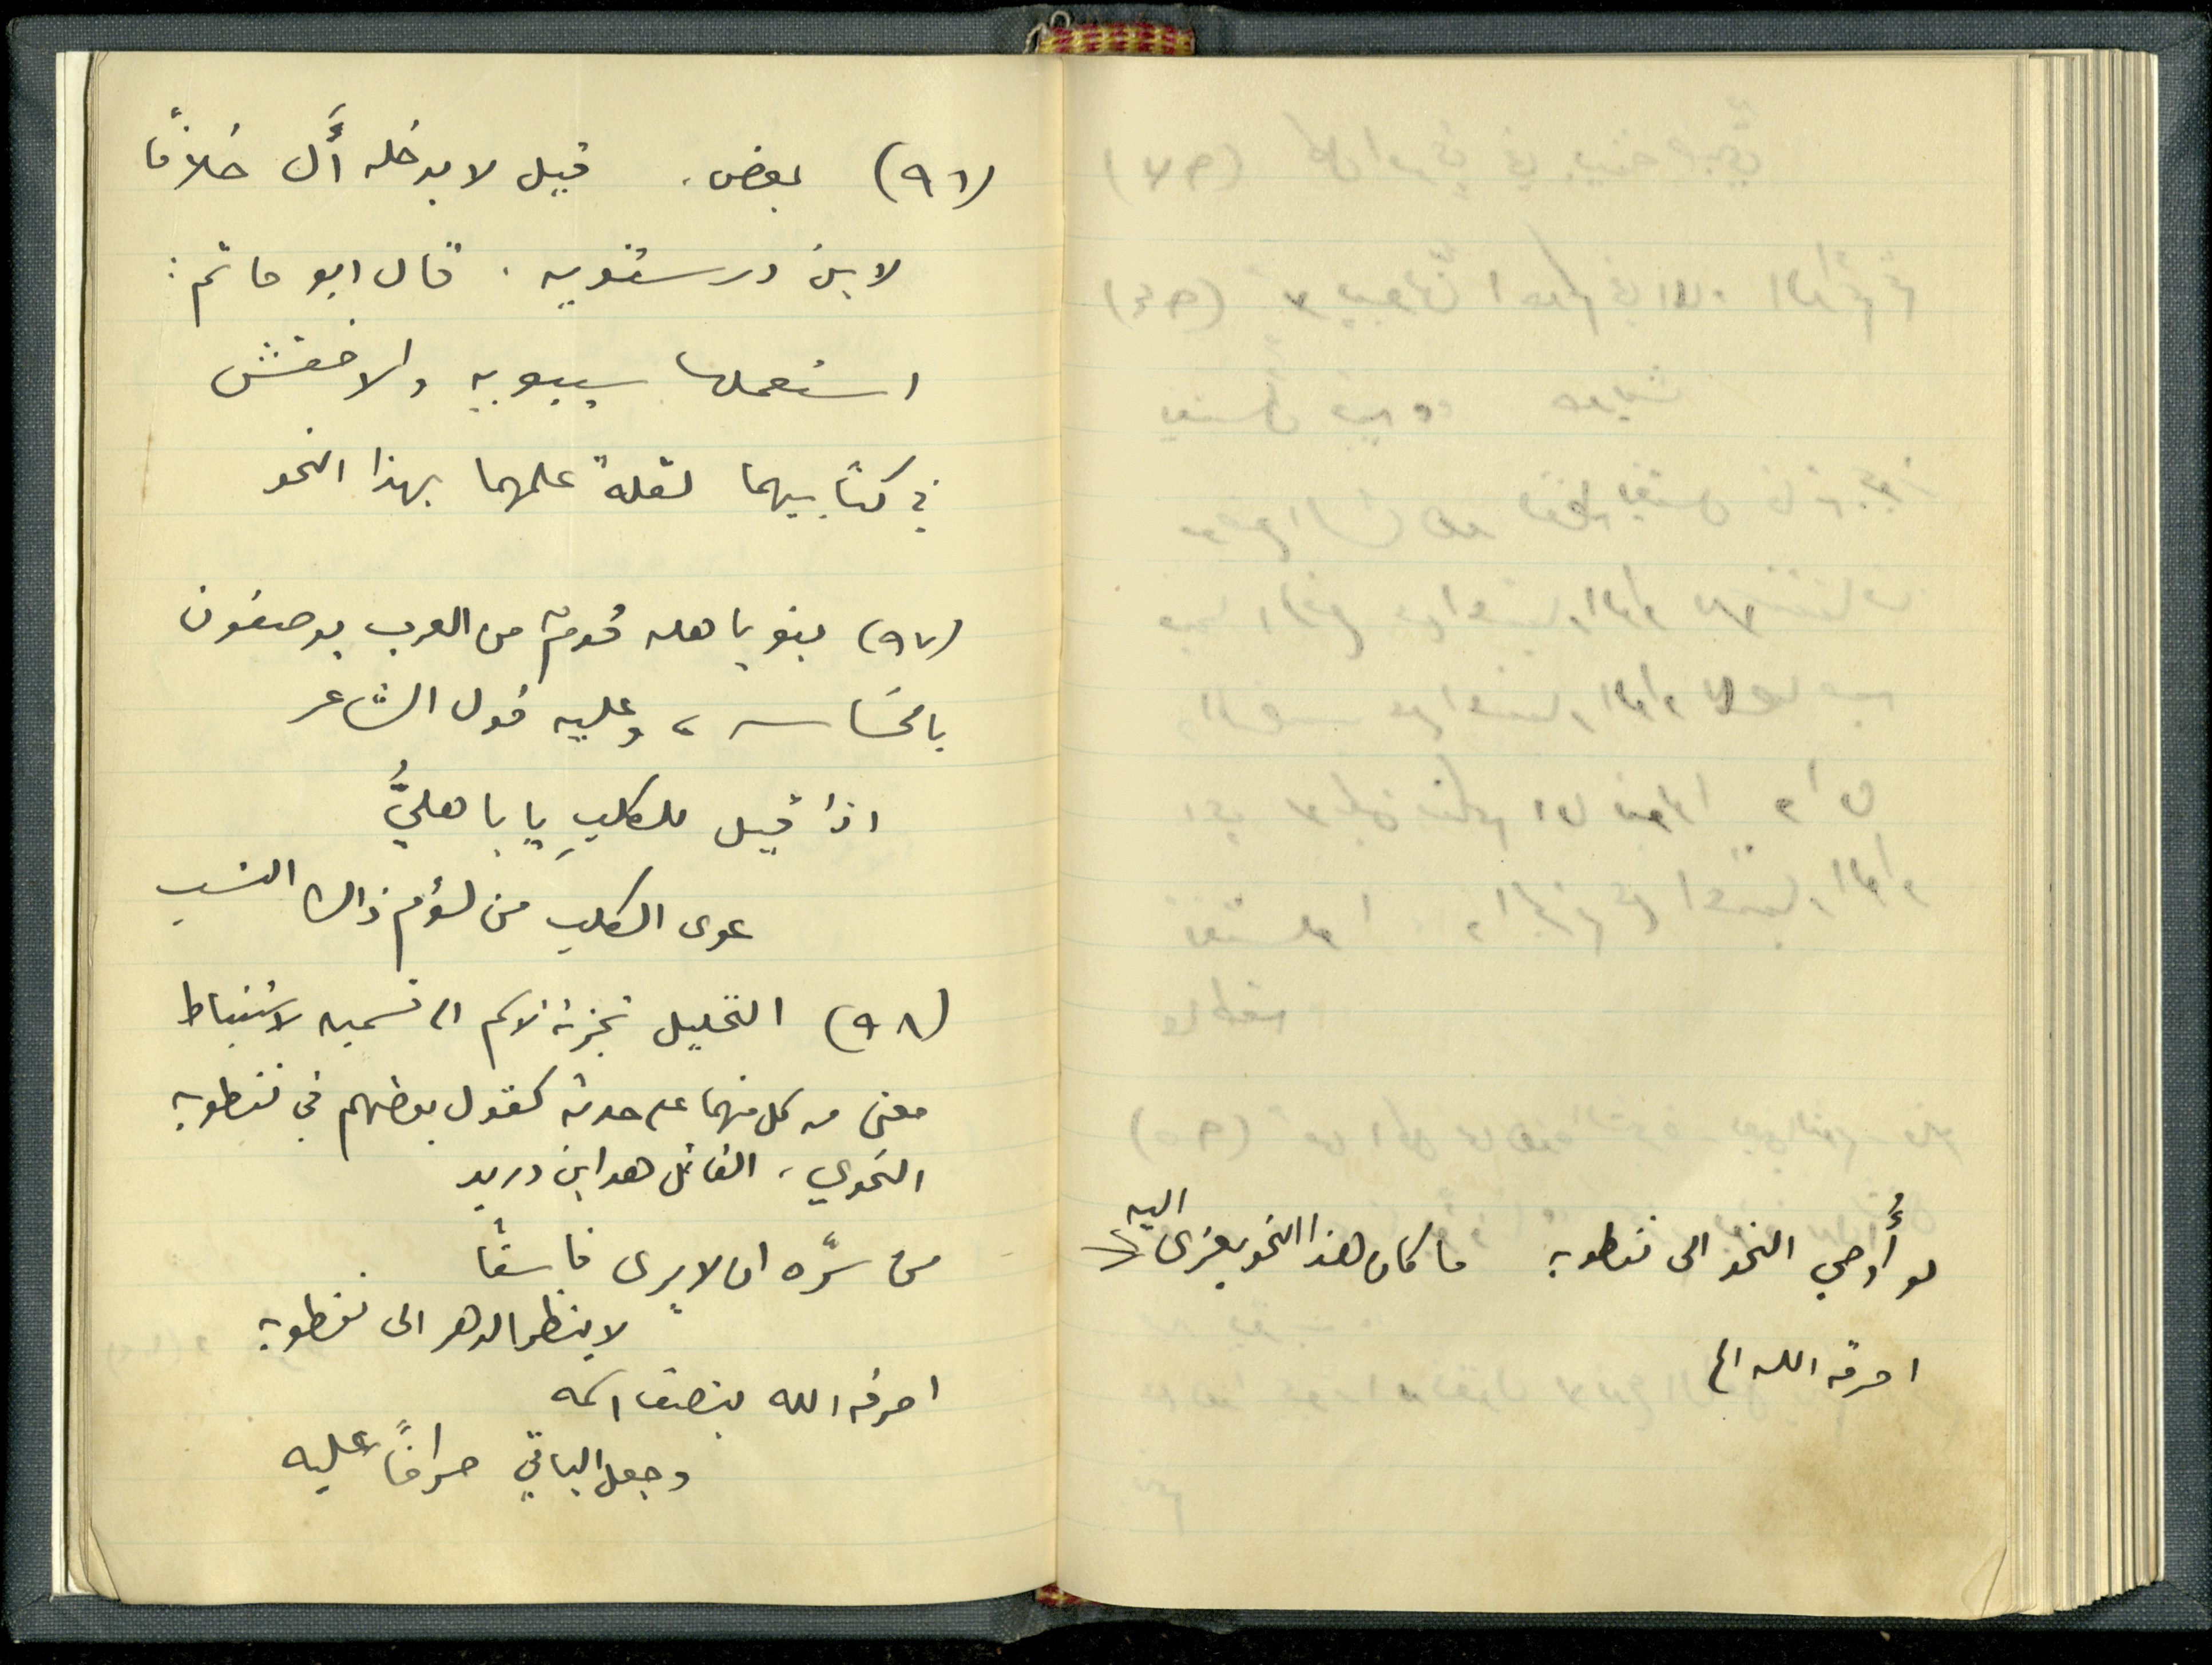 (٩٦) بعض، قيل لا يدخله أَل خلافًا
لابن درستويه. قال ابو حاتم:
استعملها سيبويه والاخفش
في كتابيهما لقلة علمهما بهذا النحو
(٩٧) بنو باهله قومٌ من العرب يوصفون
بالخساسه، وعليه قول الشاعر
اذا قيل للكلبِ يا باهليُّ
عوى الكلب من لؤم ذاك النسب
(٩٨) التحليل تجزئة الاسم الى قسميه لاستنباط
معنى من كل منهما على حدته كقول بعضهم في نفطويه
النحوي، القائل هو ابن دريد
من سرّه ان لا يرى فاسقًا
لا ينظر الدهر الى نفطويه
احرقه الله بنصف اسمه
وجعل الباقي صراخًا عليه
لو أُوحي النحو الى نفطويه ما كان هذا النحو يعزى اليه
احرقه الله الخ